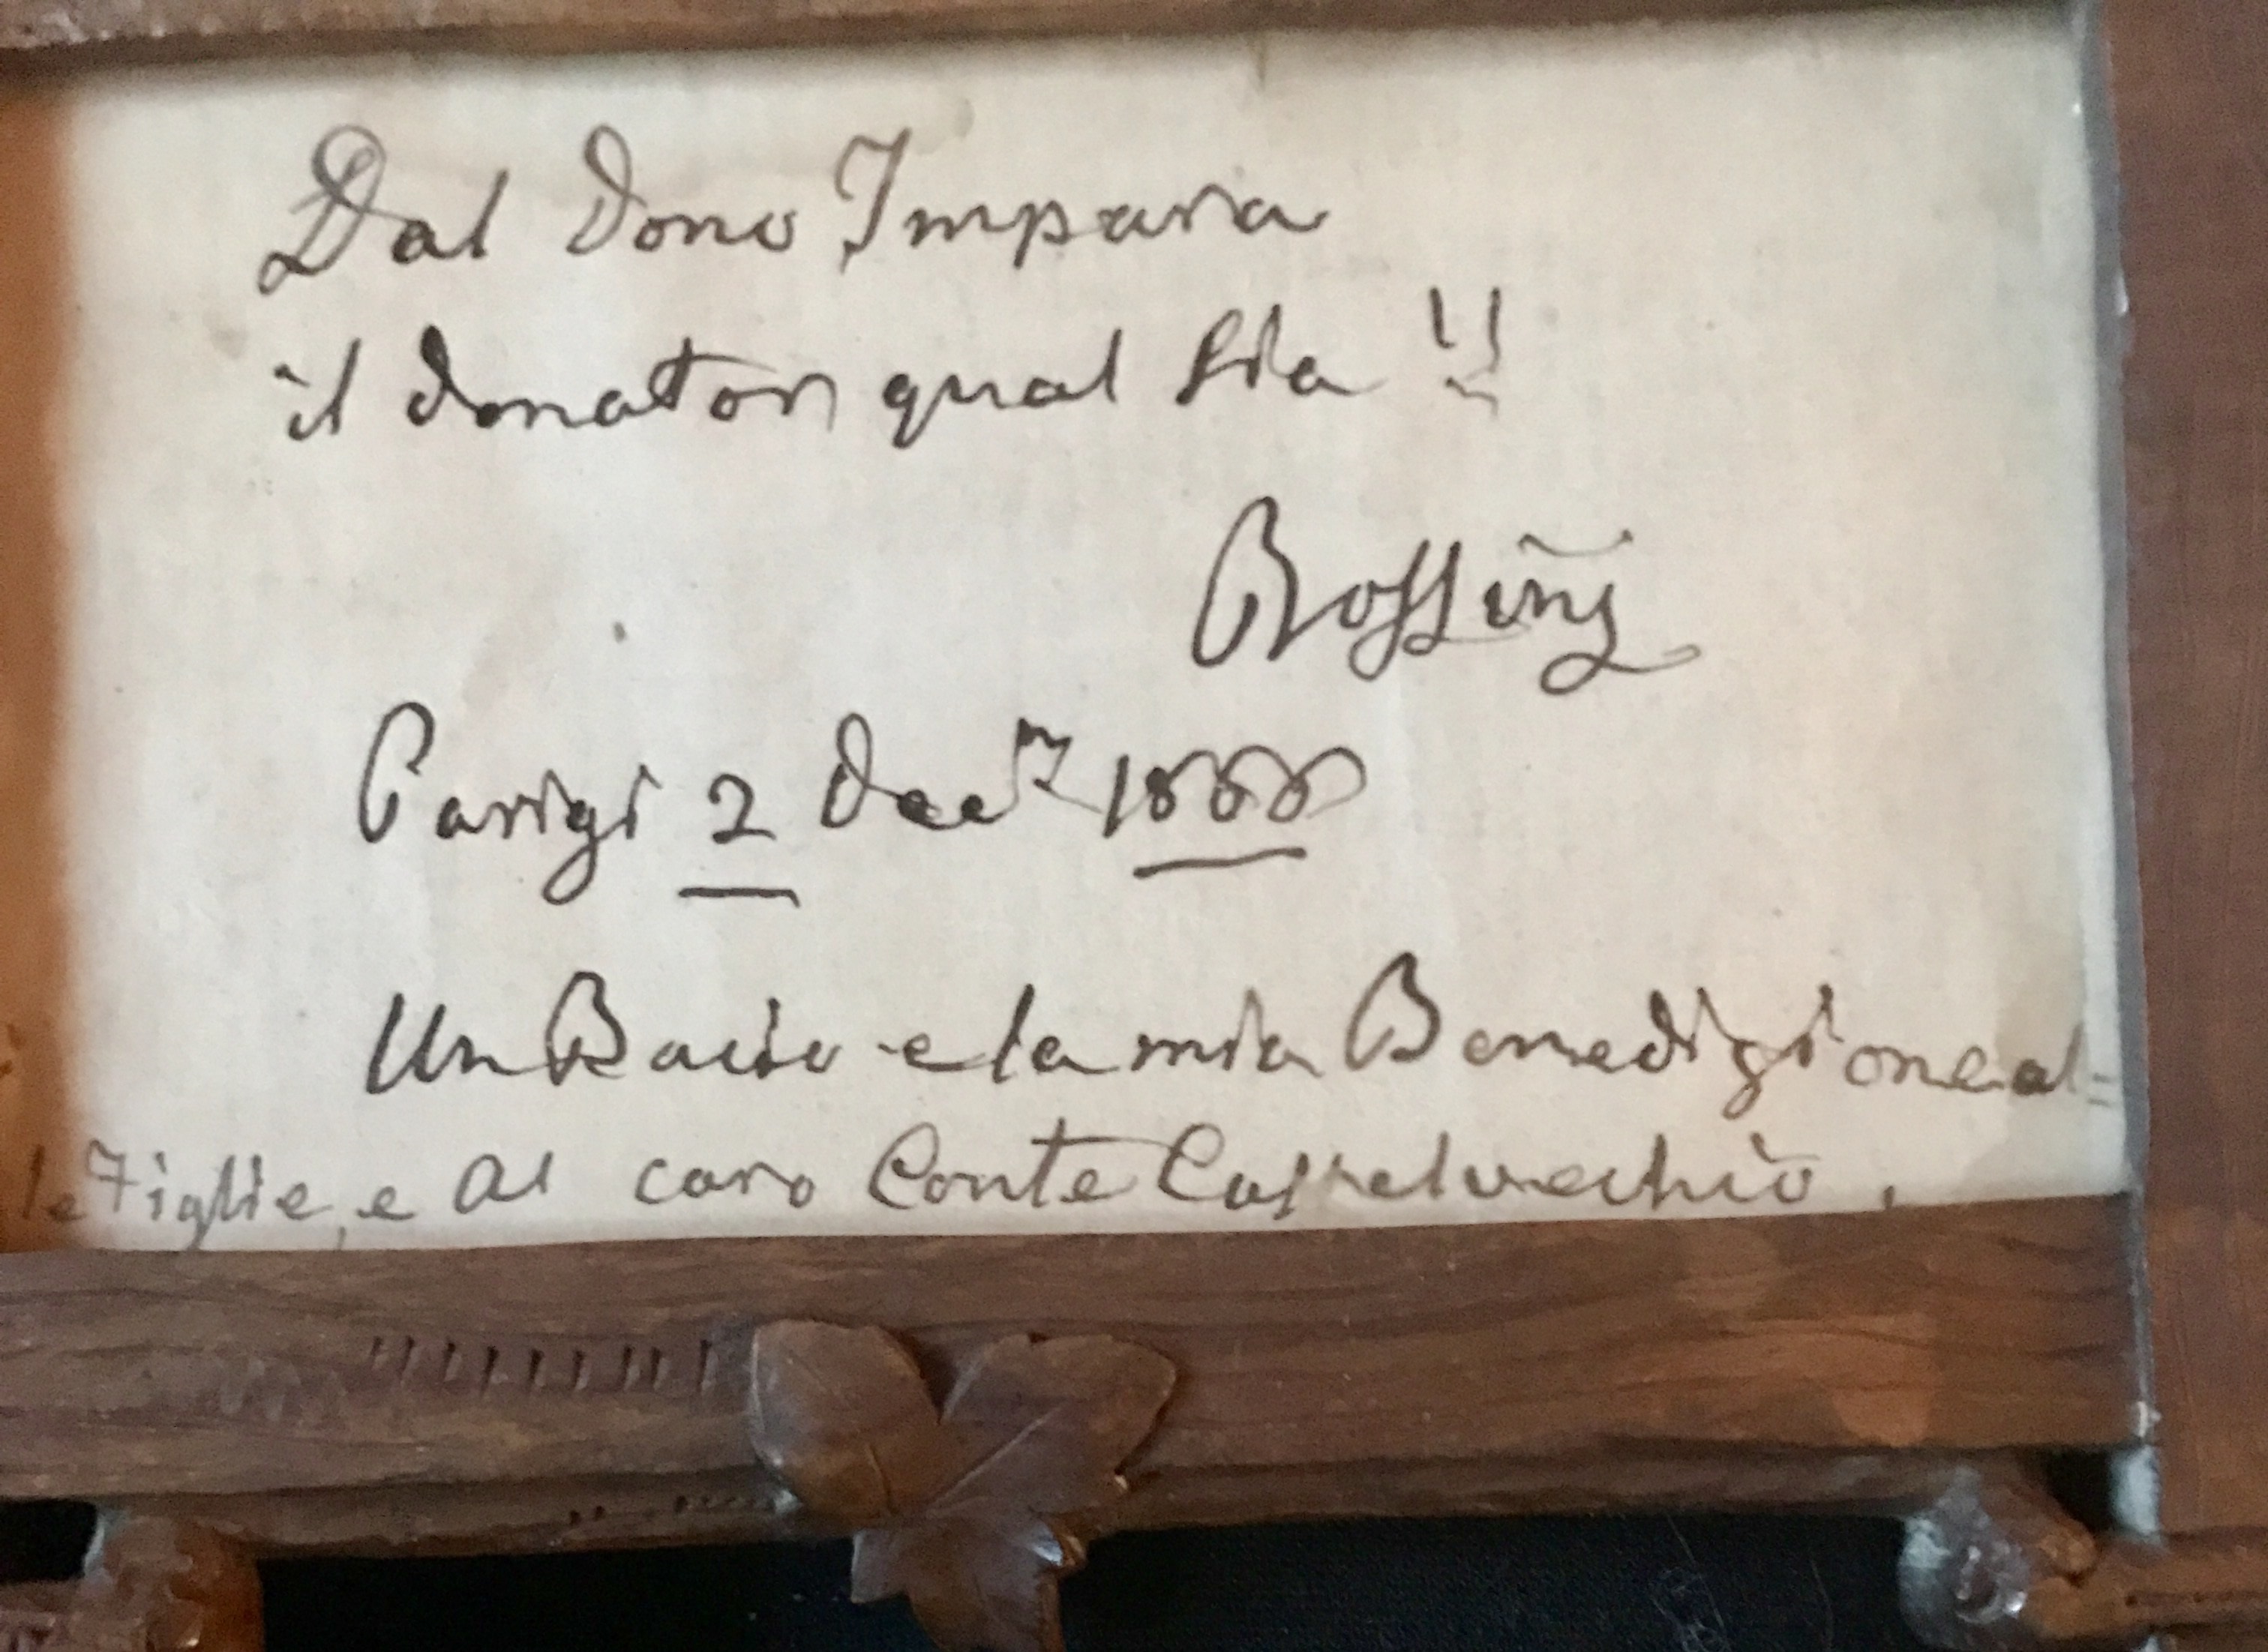 Dal Dono Impara
il donator qual Sia !!
Rossini
Parigi 2 Dec 1866
Un Bacio e la mia Benedizione al=
le Figlie, e al caro Conte Castelvechio.